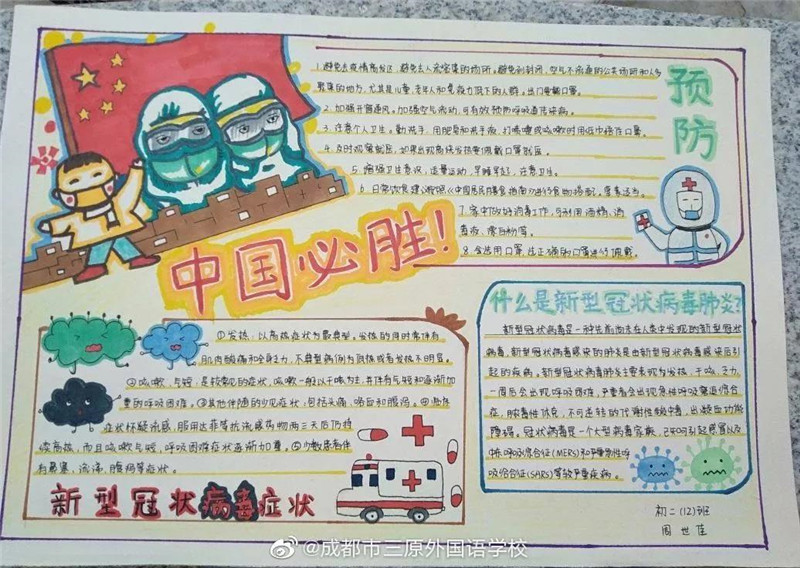 中国必胜!
预防
1.避免去疫情高发区,避免去人流密集的场所。避免到封闭、空气不流通的公共场所和人多
聚集的地方,尤其是儿童、老年人和免疫力低下的人群。出门要戴口罩。
2.加强开窗通风。加强空气流动,可有效预防呼吸道传染病。
3.注意个人卫生。勤洗手,用肥皂和洗手液,打喷嚏或咳嗽时用纸巾捂住口鼻。
4.及时观察就医,如果出现高烧发热要佩戴口罩就医。
5.增强卫生意识,适量运动,早睡早起,注意卫生。
6.日常饮食建议按照《中国居民膳食指南》进行食物搭配。营养适当。
7.家中做好消毒工作,可利用酒精、消
毒液、漂白粉等。
8.会选用口罩,佳正确的口罩进行佩戴
①发热:以高热症状为最典型。发热的同时常伴有
肌肉酸痛和全身乏力,不典型病例为低热或者发热不明显。
②咳嗽、气短,是较常见的症状,咳嗽一般以干咳为主,并伴有气短和逐渐加
重的呼吸困难。③其他伴随的少见症状,包括头痛,咯血和腹泻。④患体
症状怀疑流感,服用达菲等抗流感药物两三天后仍持
续高热,而且咳嗽气短、呼吸困难症状逐渐加重。⑤少数患者伴
有鼻塞,流涕,腹泻等症状。
新型冠状病毒症状
什么是新型冠状病毒肺炎?
新型冠状病毒是一种先前尚未在人类中发现的新型冠状
病毒,新型冠状病毒感染的肺炎是由新型冠状病毒感染后引
起的疾病。新型冠状病毒肺炎主要表现为发热,干咳,乏力,
一周后会出现呼吸困难,严重者会出现急性呼吸窘迫综合
症,脓毒性休克,不可逆转的代谢性酸中毒,出凝血功能
障碍。冠状病毒是一个大型病毒家族,已知可引起感冒以及
中东呼吸综合征(MERS)和严重急性呼
吸综合征(SARS)等较严重疾病。
初二(12)班
周世佳
@成都市三原外国语学校